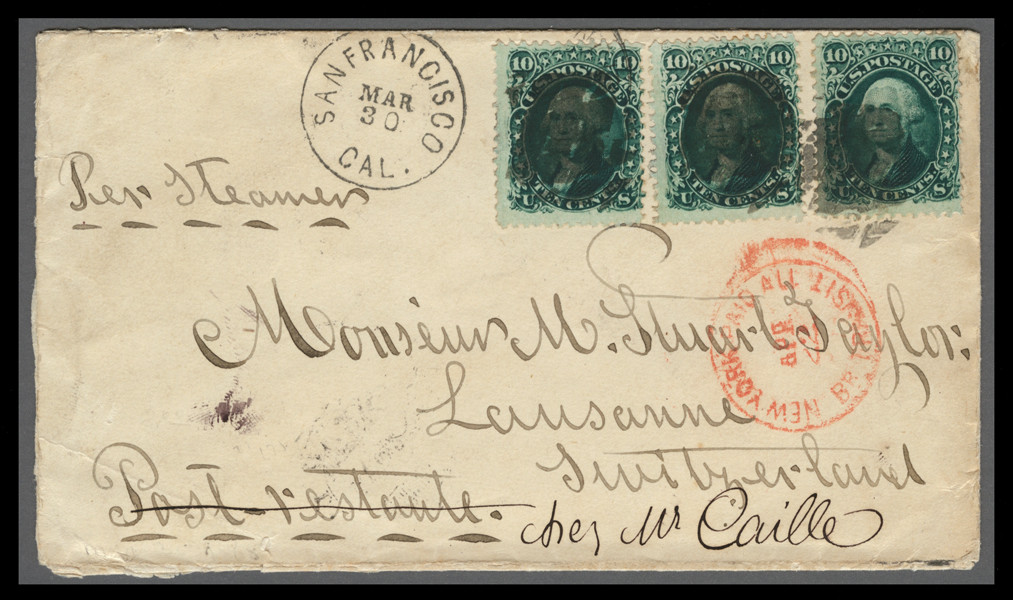 SAN FRANCISCO
MAR
30
CAL.
10 10
U.S. POSTAGE
TEN CENTS.
U S
10 10
U.S. POSTAGE
TEN CENTS.
U S
10 10
U.S. POSTAGE
TEN CENTS.
U S.
Per Steamer
Monsieur M. Stuart Taylor.
Lausanne
Switzerland
Post-restante.
chez Mr Caille
NEW YORK PAID ALL BR
APR